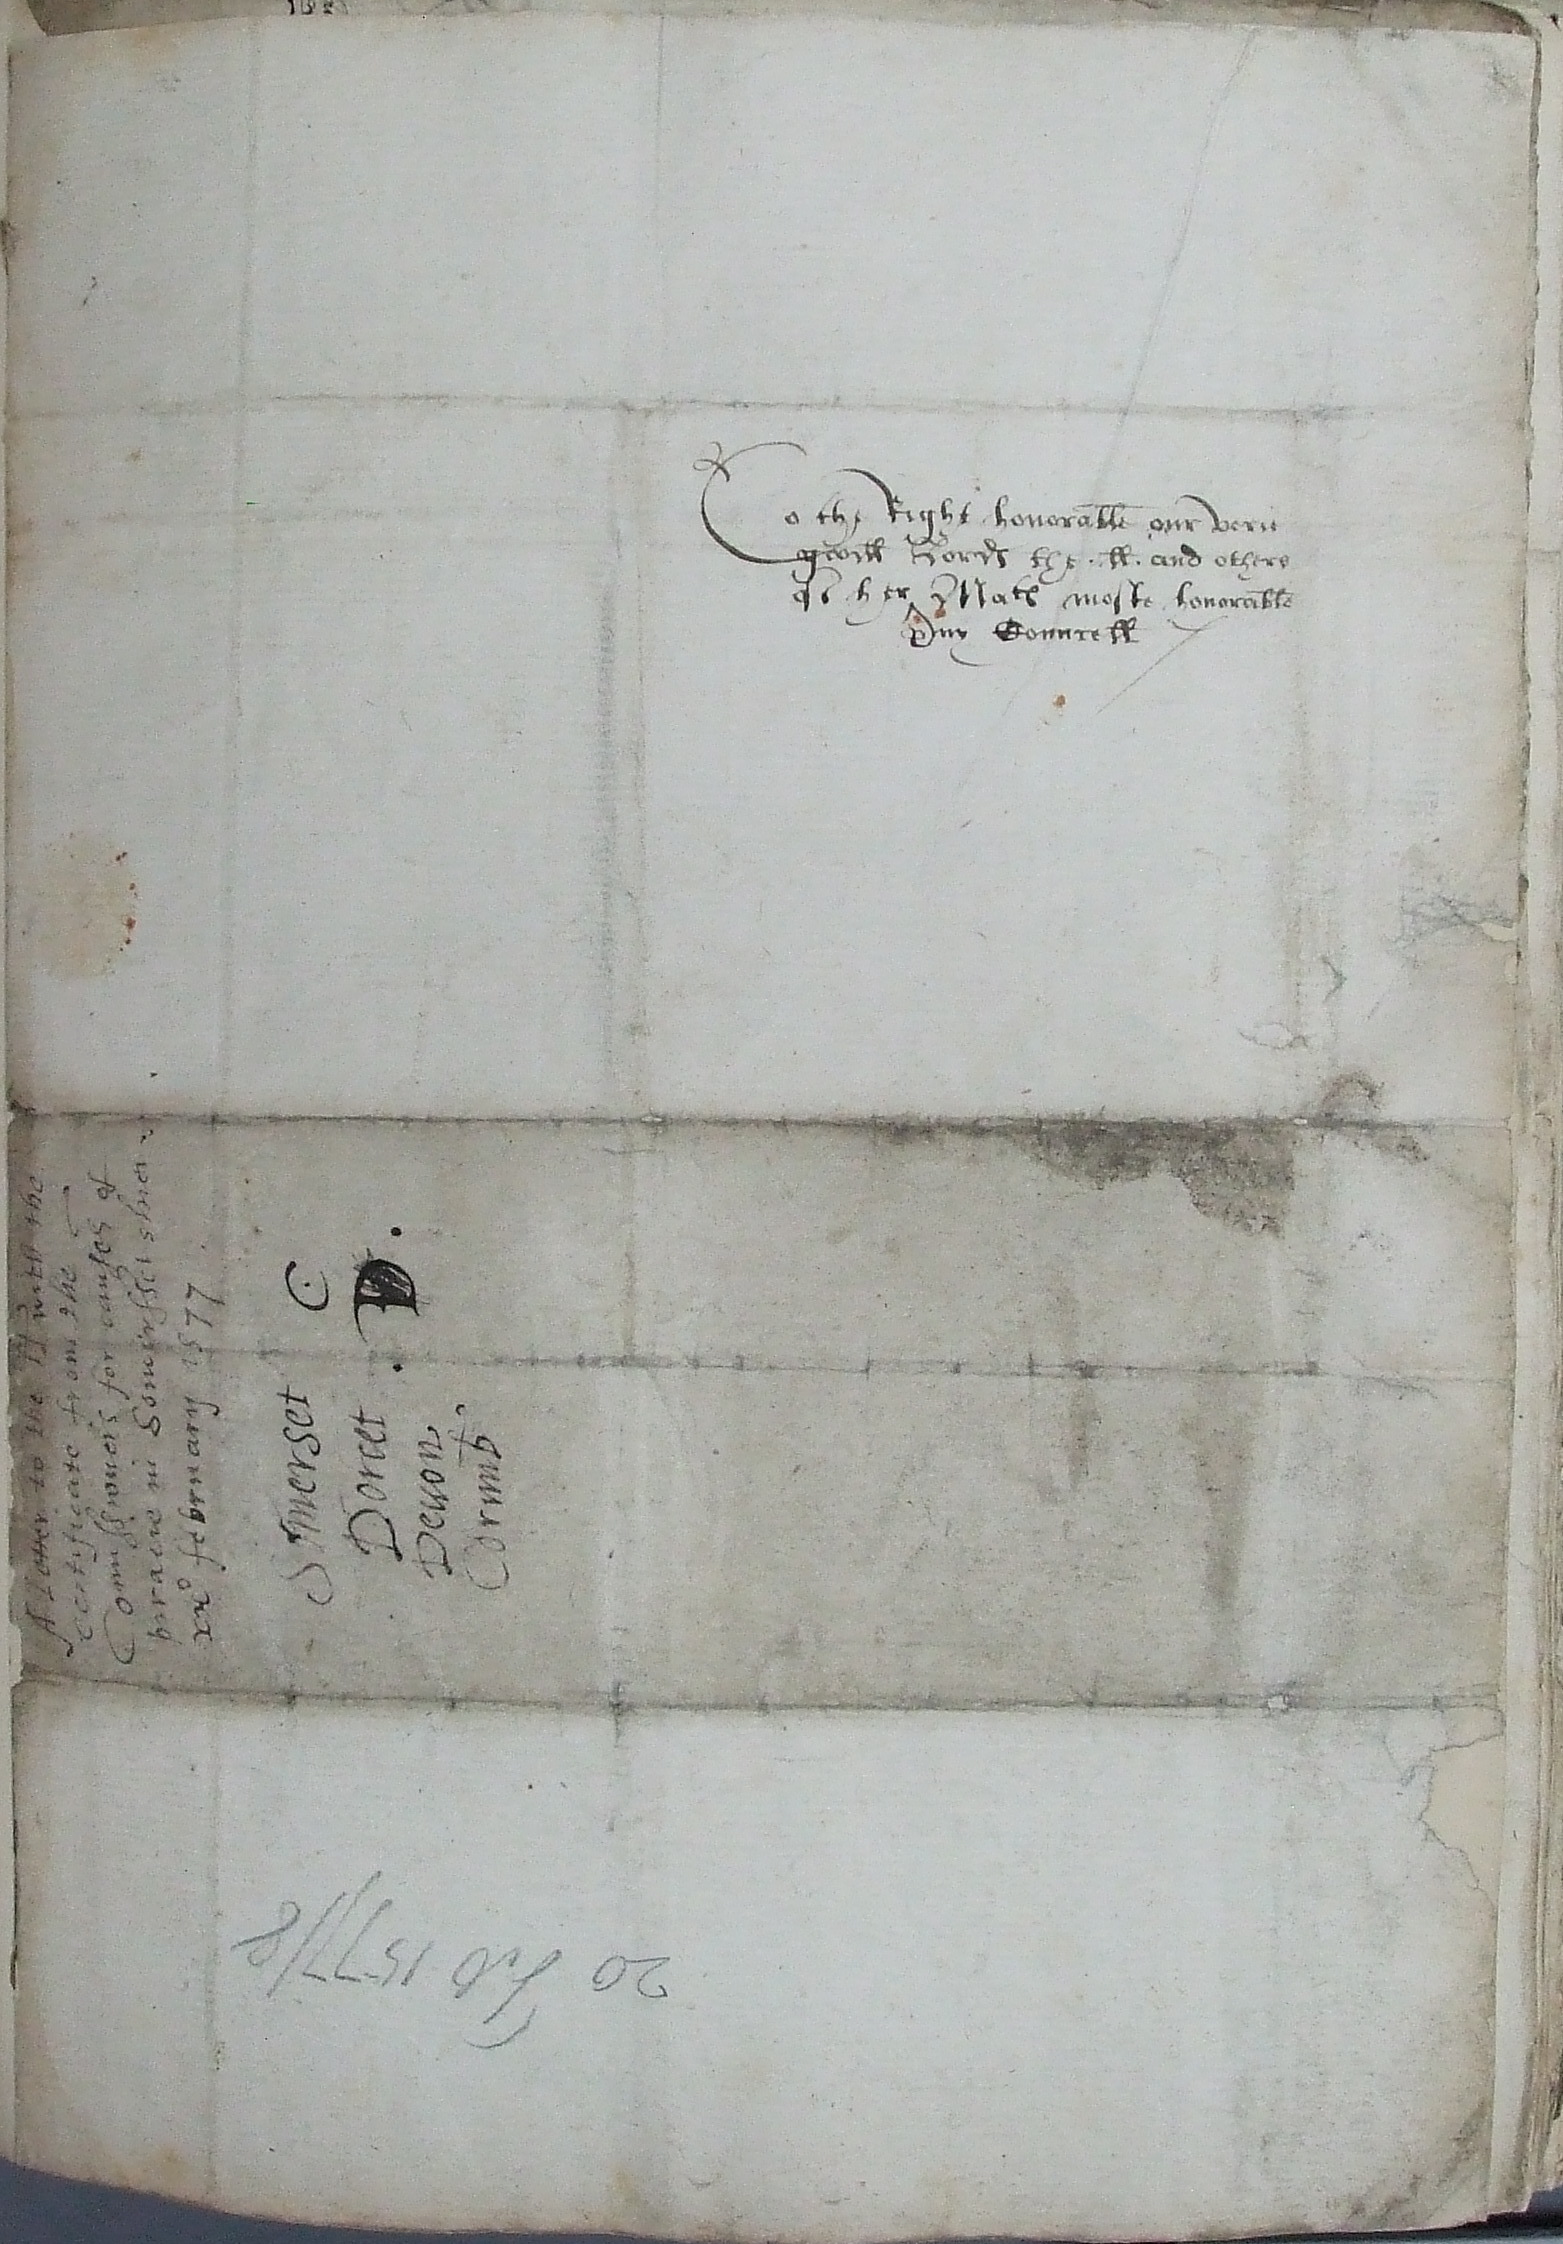 To the Right honorable our verie
good Lords the .ll. and others
of her Mats moste honorable
Privy Councell
A Letter to the ll with the
certificate from the
Comissioners for causes of
piracie in Somersetshire
xxo february 1577
Somerset C
Dorcet . D .
Devon
Cornub.
20 Feb 1577/8